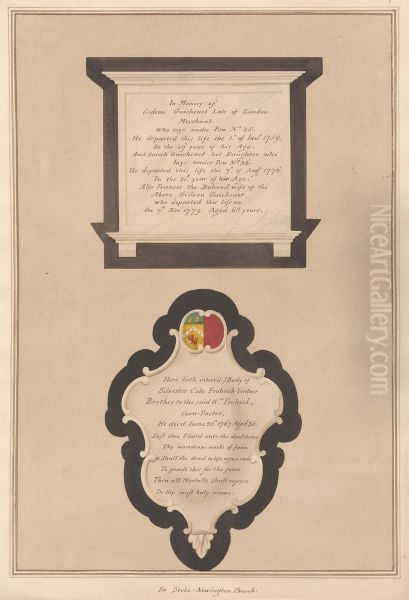 In Memory of
Gideon Guichenet Late of London
Merchant.
Who lays under Pew No. 38.
He departed this life the 1st of Janry 1759.
In the 49th year of his Age.
And Sarah Guichenet his Daughter who
lays under Pew No. 36.
He departed this life the 7th of Augt 1776.
In the 31st year of his Age.
Also Frances the Beloved wife of the
Above Gideon Guichenet
who departed this life on
the 7th Novr 1779. Aged 68 years.
Here lieth interr'd ye Body of
Silvester Cole Frohock
Brother to the said Wm Frohock,
Corn-Factor,
He died June 26th 1767 Aged 36.
Dost thou O Lord unto the dead
Thy wondrous works of fame
Shall the dead to life again come
To praise thee for the same
Then all Mortalls shall rejoyce
In thy most holy name.
In Stoke-Newington Church.
NiceArtGallery.com